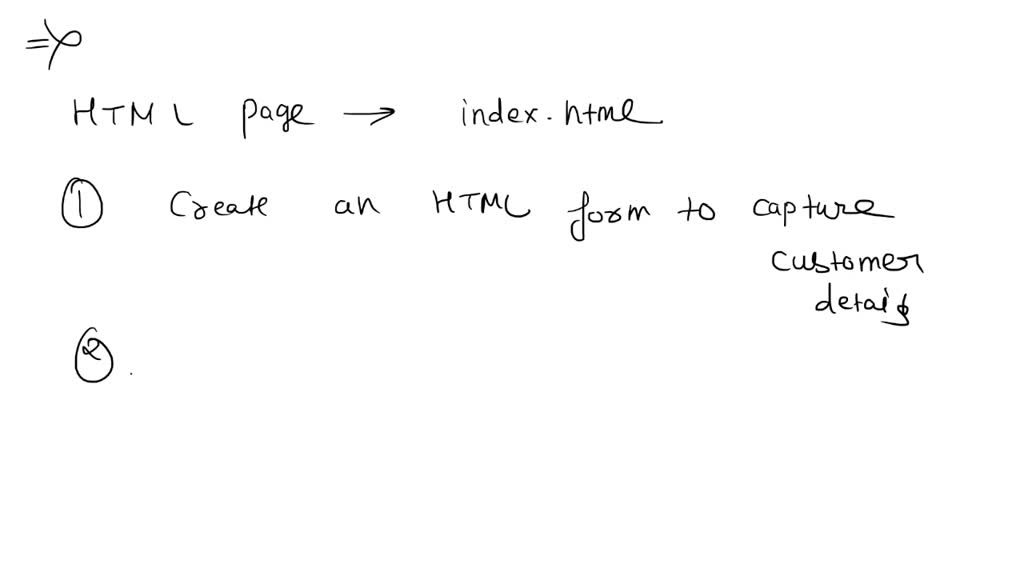 ⇒
HTML page → index.html
① Create an HTML form to capture
customer
details
②.